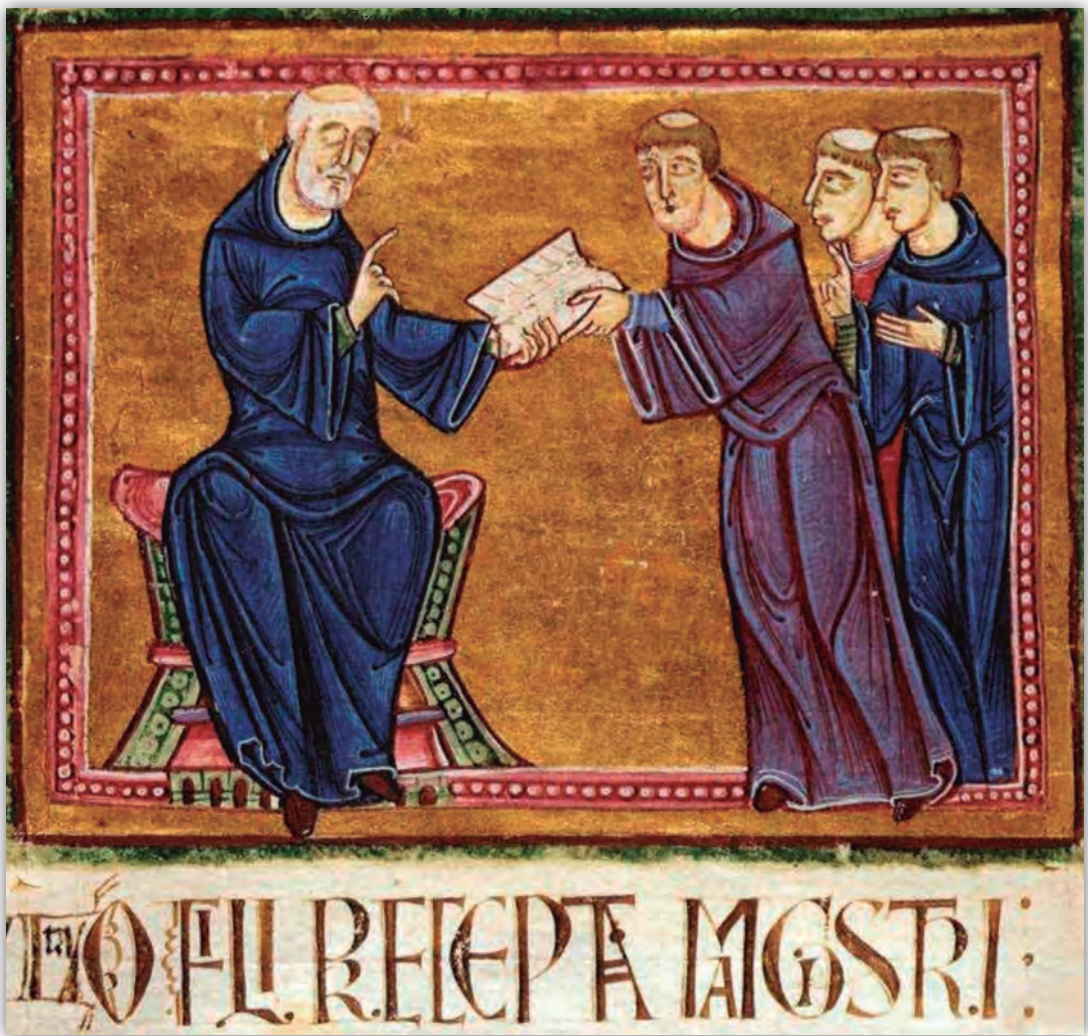 FILI RECEPTA MAGISTRI: